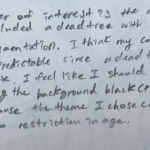 er of interest is the
cluded a dead tree with
mentation. I think my co
predictable since a dead t
k. I feel like I should
g the background black ca
ause the theme I chose c
o restriction in age.